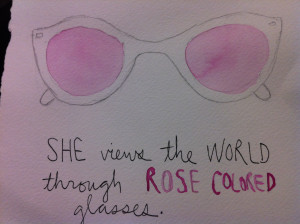 SHE views the WORLD
through ROSE COLORED
glasses.